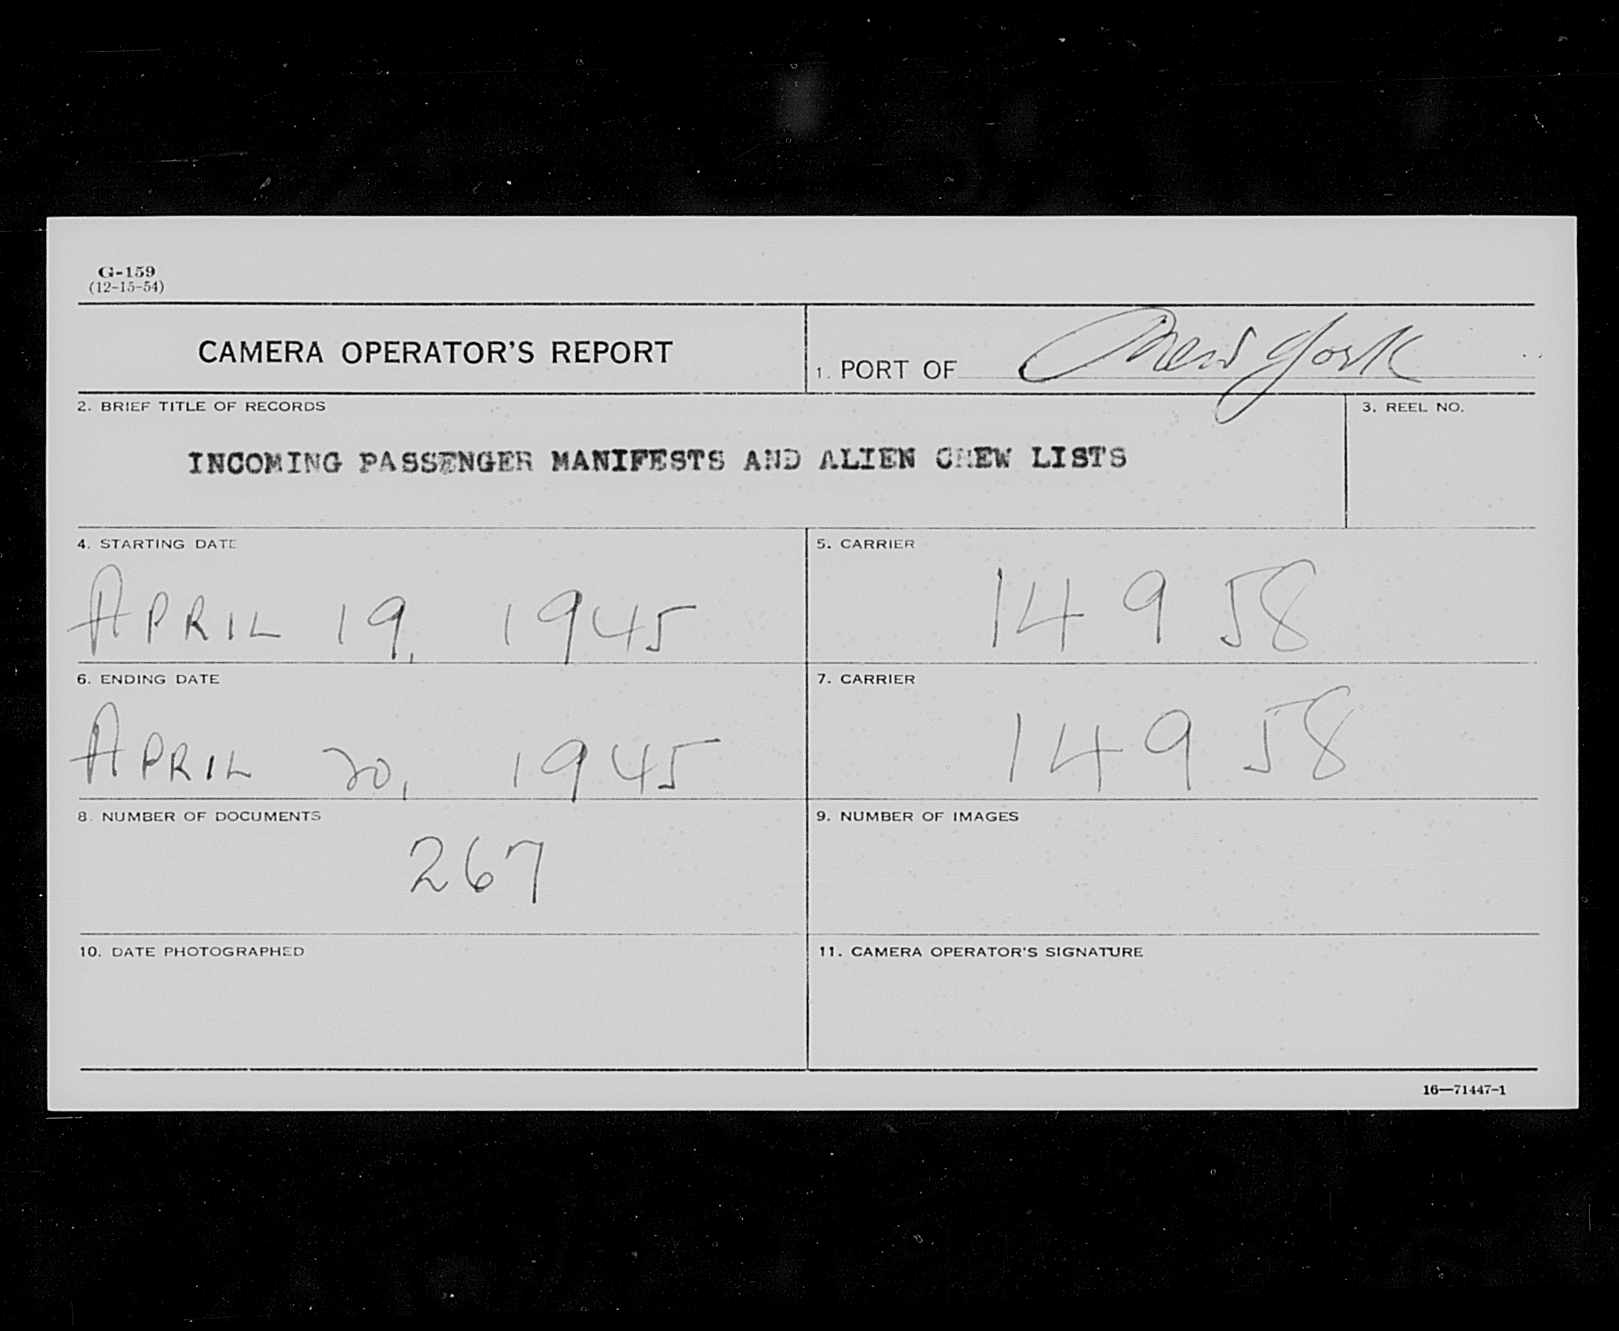 G-159
(12-15-54)
CAMERA OPERATOR'S REPORT
1. PORT OF New York
2. BRIEF TITLE OF RECORDS
3. REEL NO.
INCOMING PASSENGER MANIFESTS AND ALIEN CREW LISTS
4. STARTING DATE
5. CARRIER
APRIL 19, 1945
14958
6. ENDING DATE
7. CARRIER
APRIL 20, 1945
14958
8. NUMBER OF DOCUMENTS
9. NUMBER OF IMAGES
267
10. DATE PHOTOGRAPHED
11. CAMERA OPERATOR'S SIGNATURE
16—71447-1